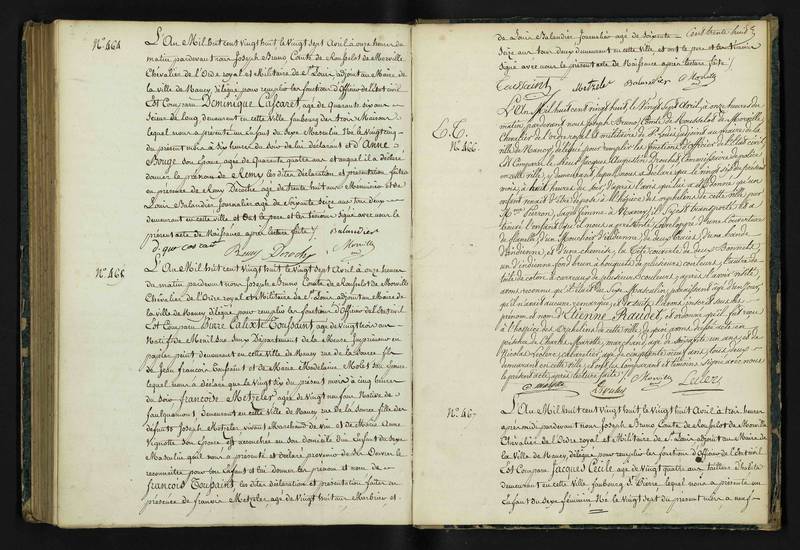 N.° 464
L'An Mil huit cent vingt huit le vingt sept Avril à onze heures du
matin pardevant nous Joseph Bruno Comte de Rousselot de Morville
Chevalier de l'Ordre royal et Militaire de St Louis, adjoint au Maire de
la ville de Nancy, délégué pour remplir les fonctions d'Officier de l'Etat civil
Est Comparu Dominique Cascaret, agé de Quarante six ans
demeurant en cette Ville faubourg des trois Maisons
lequel nous a présenté un Enfant du Sexe Masculin Né le Vingt cinq
du présent mois à six heures du Soir de lui déclarant et d'Anne
Bouge son Epouse, agée de Quarante quatre ans et auquel il a déclaré
donner le prénom de Remy les dites déclaration et présentation faites
en présence de Remy Deroche, agé de trente huit ans Menuisier et de
Louis Balandier Journalier agé de Soixante Seize ans tous deux
demeurant en cette ville et ont le pere et les témoins Signés avec nous le
présent acte de Naissance après lecture faite /.
Remy Deroche
N.° 465
L'An Mil huit cent vingt huit le vingt sept Avril à onze heures
du matin pardevant nous Joseph Bruno Comte de Rousselot de Morville
Chevalier de l'Ordre royal et Militaire de St Louis adjoint au Maire de la
ville de Nancy, délégué pour remplir les fonctions d'Officier de l'Etat civil
Est Comparu Pierre Calixte Toussaint agé de Vingt trois ans
Natif de Mesnil Département de la Meuse Imprimeur en
papier peint demeurant en cette Ville de Nancy rue de la Douce fils
de Jean francois Toussaint et de Marie Madelaine
lequel nous a déclaré que le Vingt six du présent mois à cinq heures
du Soir francoise Metzeler agée de Vingt neuf ans Native de
demeurant en cette ville de Nancy rue de la Douce fille des
défunts Joseph Metzeler vivant Marchand de Vin et de Marie Anne
Vignotte son Epouse est accouchée en son domicile d'un Enfant du Sexe
Masculin qu'il nous a présenté et déclaré provenir de Ses Oeuvres le
reconnaître pour Son Enfant et lui donner les prénom et nom de
francois Toussaint, les dites déclaration et présentation faites en
présence de francois Metzeler agé de Vingt huit ans Marbrier et
de Louis Balandier Journalier agé de Soixante
Seize ans tous deux demeurant en cette ville et ont le pere et les témoins
signé avec nous le présent acte de Naissance après lecture faite /.
Toussaint Metzeler Balandier
N.° 466
L'An Mil huit cent vingt huit, le Vingt Sept Avril, à onze heures du
matin, pardevant nous Joseph Bruno, Comte de Rousselot de Morville,
Chevalier de l'Ordre royal et militaire de St Louis, adjoint au maire de la
ville de Nancy, délégué pour remplir les fonctions d'officier de l'Etat civil
Est Comparu le Sieur Jacques Augustin Commissaire de police
en cette ville, y demeurant, lequel nous a déclaré que le vingt six du présent
mois, à huit heures du Soir, d'après l'avis qui lui a été donné, qu'un
enfant venait d'être déposé à l'hospice des orphelins de cette ville, par
Pierron, Sage femme à Nancy, il S'y est transporté et a
trouvé l'enfant qu'il nous a présenté, enveloppé d'une Couverture
de flanelle, d'un Mouchoir d'indienne, de deux braies, d'une bande
d'indienne, d'une chemise, la tête couverte de deux Bonnets,
un d'indienne fond brun à bouquets de plusieurs couleurs, l'autre de
toile de coton à carreaux de plusieurs Couleurs, après l'avoir visité,
avons reconnu qu'il était du Sexe Masculin, paraissant agé d'un jour,
qu'il n'avait aucune remarque, et de suite l'avons inscrit sous les
prénom et nom d'Etienne Raudet, et ordonné qu'il fut remis
à l'hospice des Orphelins de cette ville, de quoi avons dressé acte en
présence de Charles marchand, agé de Soixante un ans et
Nicolas agé de cinquante neuf ans, tous deux
demeurant en cette ville, et ont les Comparant et témoins Signé avec nous
le présent acte, après lecture faite /.
N.° 467
L'An Mil huit cent vingt huit le vingt huit Avril à trois heures
après midi pardevant nous Joseph Bruno Comte de Rousselot de Morville
Chevalier de l'Ordre royal et Militaire de St Louis adjoint au Maire de
la Ville de Nancy, délégué pour remplir les fonctions d'Officier de l'Etat civil
Est Comparu Jacques Cecile, agé de Vingt quatre ans tailleur d'habits
demeurant en cette ville faubourg St Pierre lequel nous a présenté un
Enfant du Sexe féminin Né le Vingt Sept du présent mois à neuf